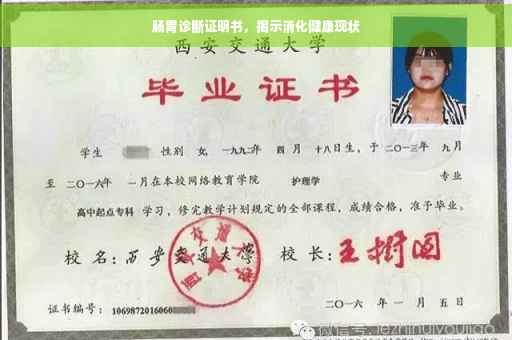 肠胃诊断证明书，揭示消化健康现状
西安交通大学
毕业证书
学生 性别 女，一九九二年 四月 十八日生，于二〇一三年 九月
至 二〇一六年 一月在本校网络教育学院 护理学 专业
高中起点专科 学习，修完教学计划规定的全部课程，成绩合格，准予毕业。
校 名：西安交通大学 校 长：王树国
西安交通大学
证书编号：1069872016060
二〇一六 年 一 月 五 日
微信号: jiezhinuiyoujiao